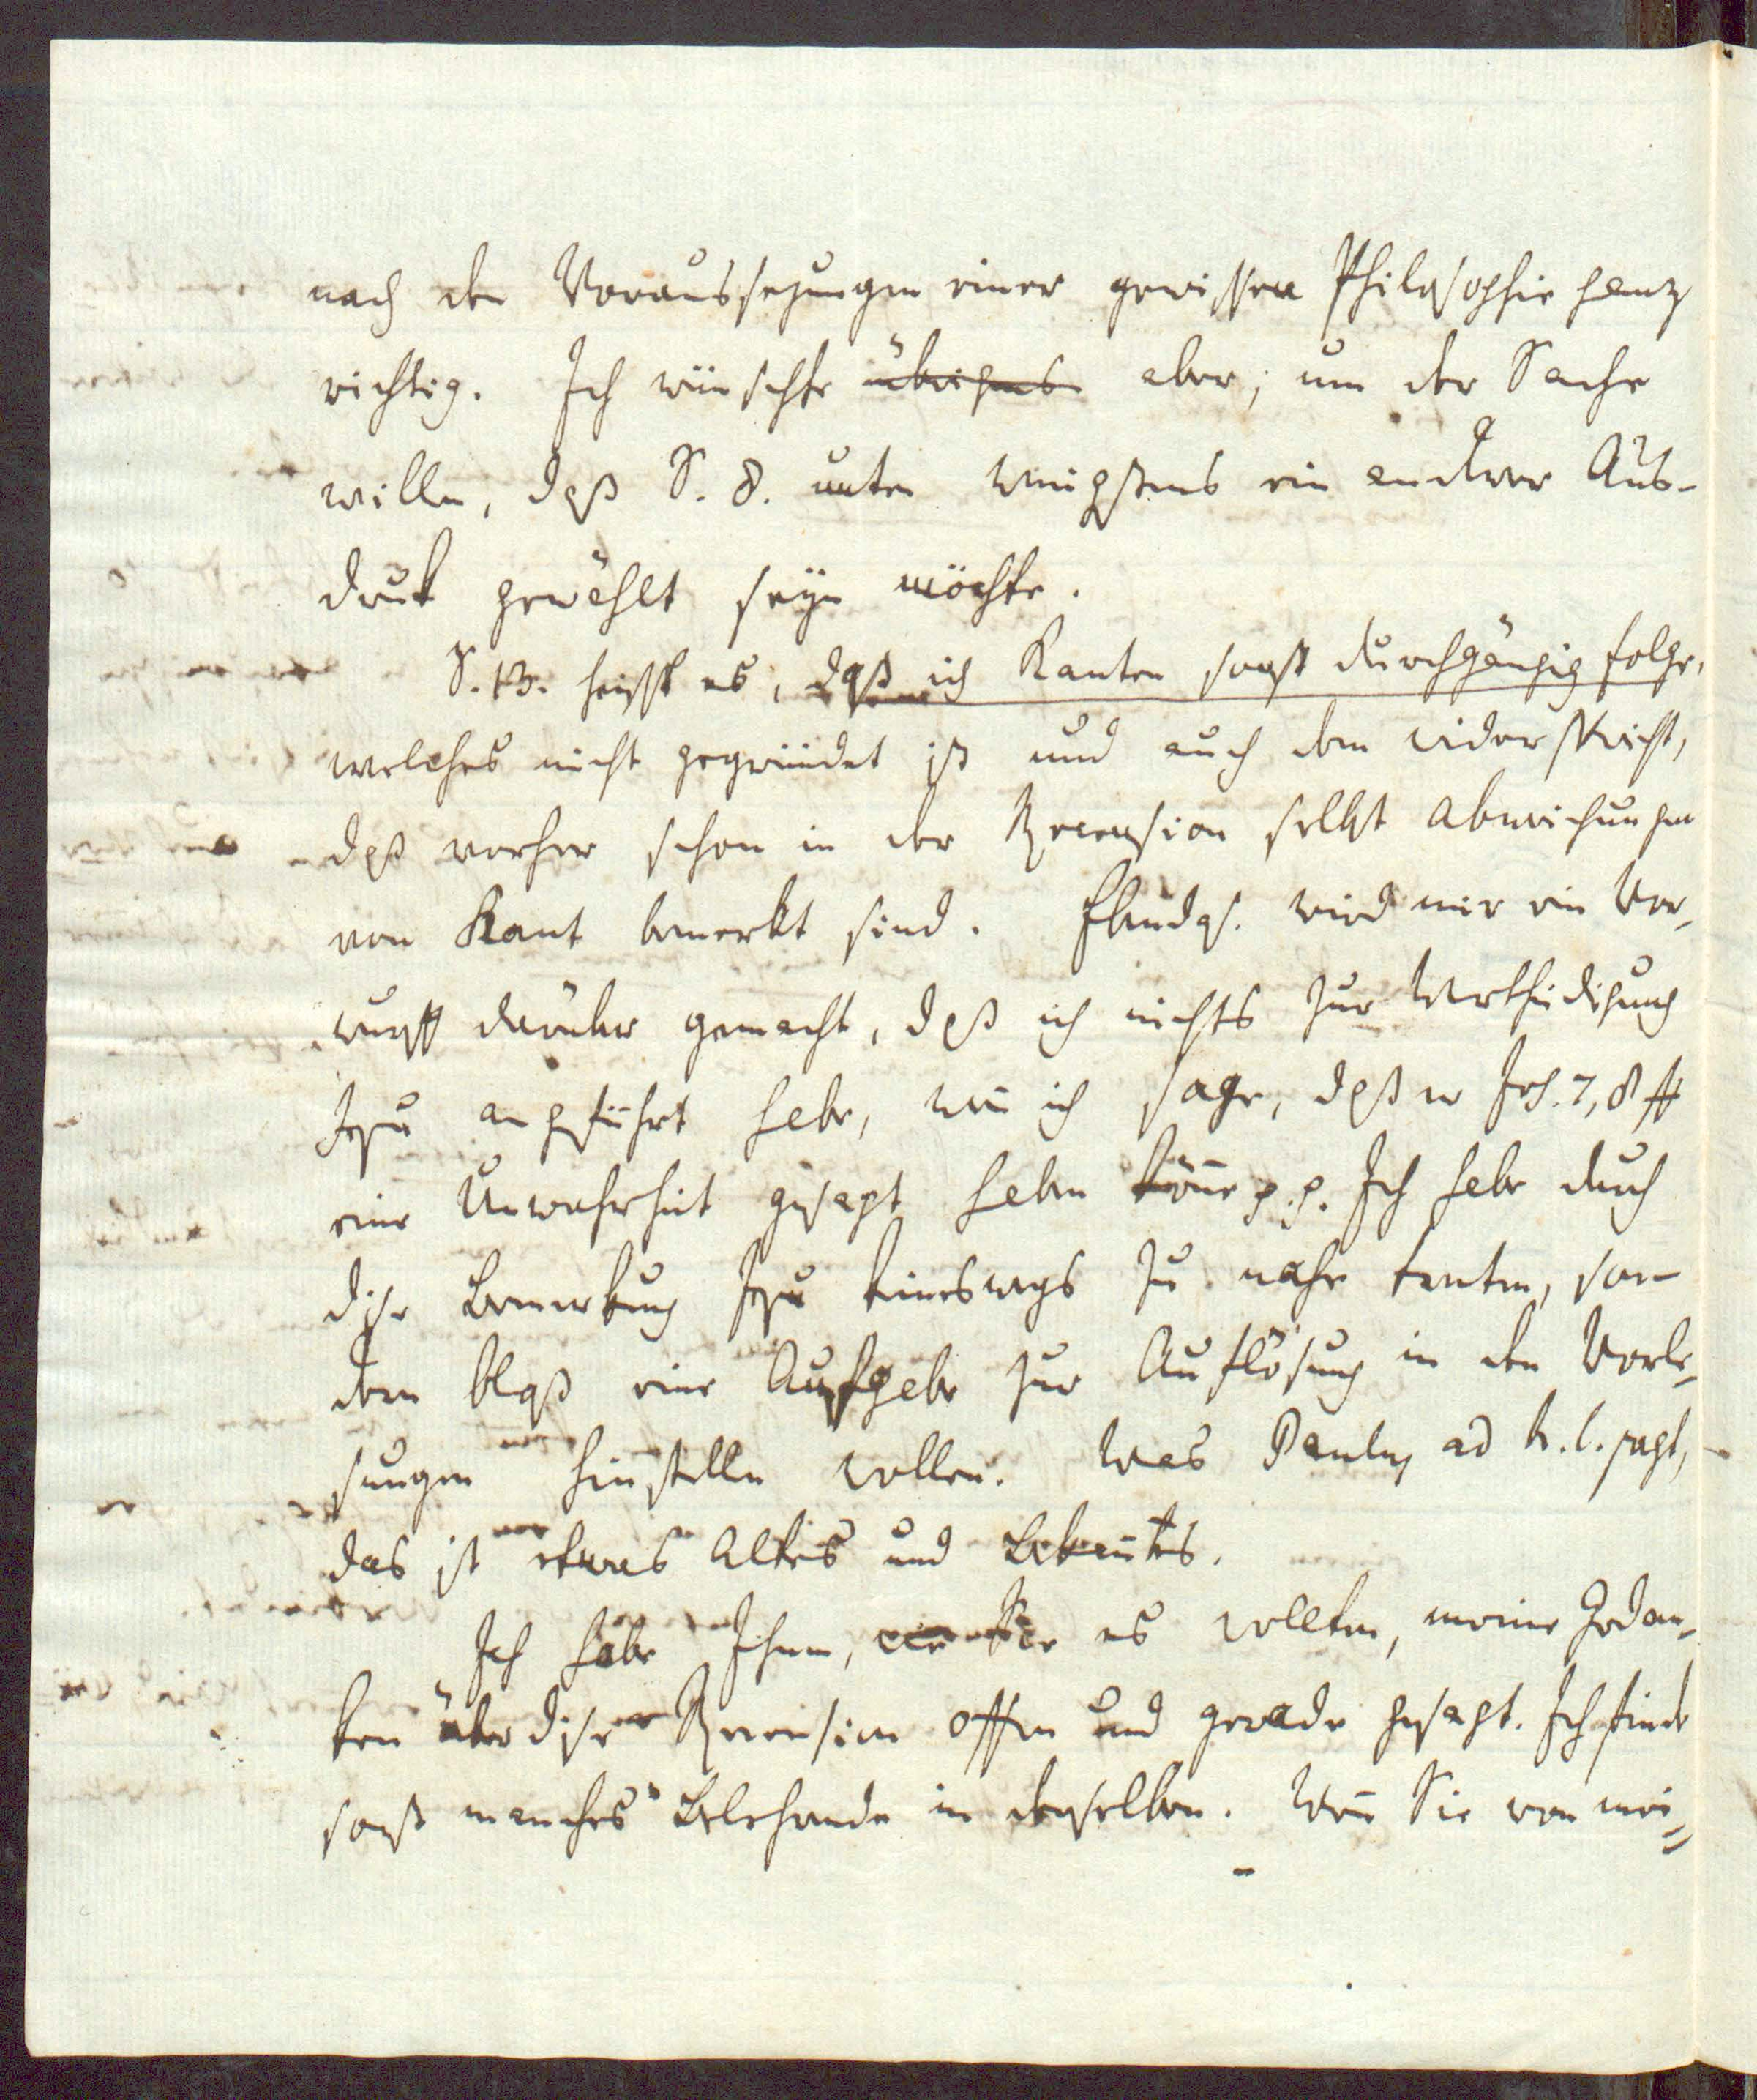 nach den Voraussezungen einer gewissen Philosophie ganz
richtig. Ich wünschte übrigens aber, um der Sache
willen, daß S. 8. unten wenigstens ein anderer Aus-
druk gewählt seyn möchte.
S. 13. heißt es, daß ich Kanten sonst durchgängig folge,
welches nicht gegründet ist und auch dem widerspricht,
daß vorher schon in der Recension selbst Abweichungen
von Kant bemerkt sind. Ebendas. wird mir ein Vor-
wurff darüber gemacht, daß ich nichts zur Vertheidigung
Jesu angeführt habe, wen̄ ich sage, daß er Joh. 7, 8 ff
eine Unwahrheit gesagt haben kön̄e p. p. Ich habe durch
diese Bemerkung Jesu keineswegs zu nahe tretten, son-
dern bloß eine Aufgabe zur Auflösung in den Vorle-
sungen hinstellen wollen. Was Paulus ad h. l. sagt,
das ist etwas Altes und Bekan̄tes.
Ich habe Ihnen, wie Sie es wollten, meine Gedan-
ken über diese Recension offen und gerade gesagt. Ich finde
sonst manches Belehrende in derselben. Wen̄ Sie von mei-